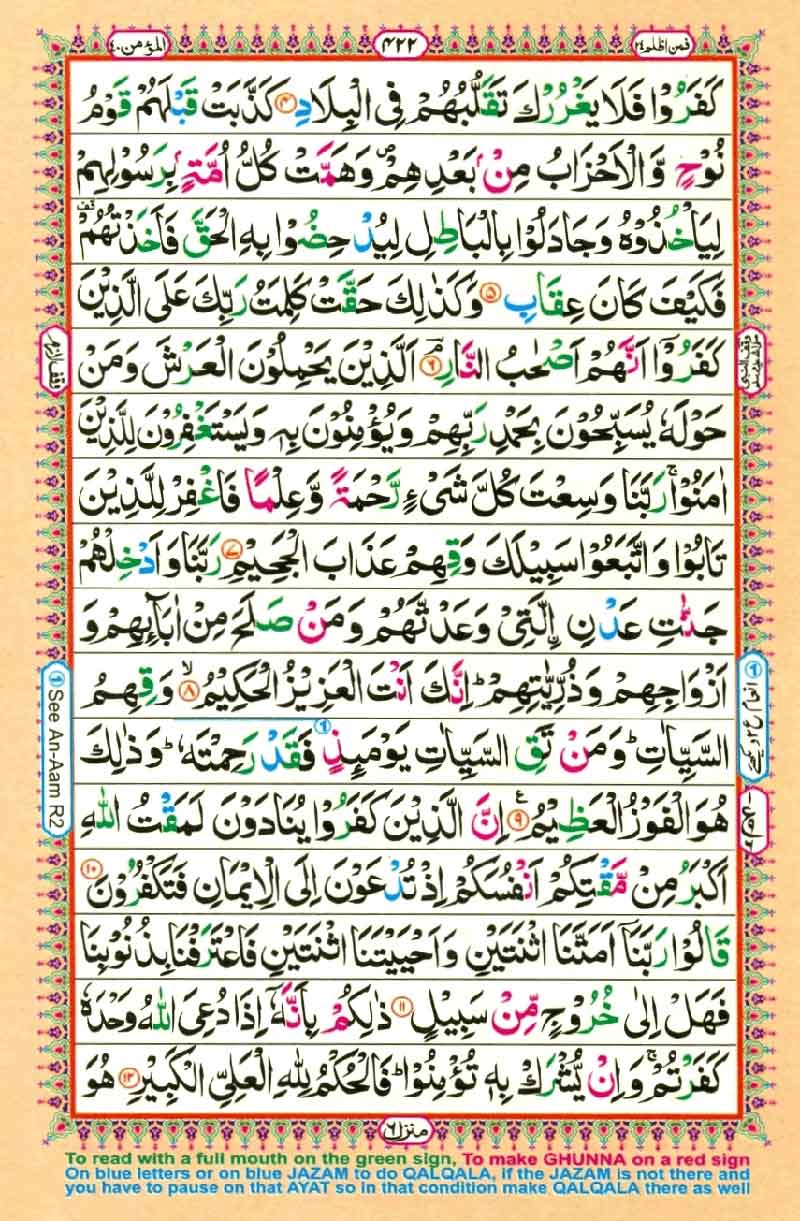 المؤمن ٤٠
٤٢٢
فمن اظلم ٢٤
كَفَرُوْا فَلَا يَغْرُرْكَ تَقَلُّبُهُمْ فِی الْبِلَادِ ﴿۴﴾ كَذَّبَتْ قَبْلَهُمْ قَوْمُ
نُوْحٍ وَّالْاَحْزَابُ مِنْۢ بَعْدِهِمْ ۪ وَهَمَّتْ كُلُّ اُمَّةٍۭ بِرَسُوْلِهِمْ
لِیَاْخُذُوْهُ وَجَادَلُوْا بِالْبَاطِلِ لِیُدْحِضُوْا بِهِ الْحَقَّ فَاَخَذْتُهُمْ ۫
فَكَیْفَ كَانَ عِقَابِ ﴿۵﴾ وَكَذٰلِكَ حَقَّتْ كَلِمَتُ رَبِّكَ عَلَی الَّذِیْنَ
كَفَرُوْۤا اَنَّهُمْ اَصْحٰبُ النَّارِ ﴿۶﴾ۘ اَلَّذِیْنَ یَحْمِلُوْنَ الْعَرْشَ وَمَنْ
حَوْلَهٗ یُسَبِّحُوْنَ بِحَمْدِ رَبِّهِمْ وَیُؤْمِنُوْنَ بِهٖ وَیَسْتَغْفِرُوْنَ لِلَّذِیْنَ
اٰمَنُوْا ۚ رَبَّنَا وَسِعْتَ كُلَّ شَیْءٍ رَّحْمَةً وَّعِلْمًا فَاغْفِرْ لِلَّذِیْنَ
تَابُوْا وَاتَّبَعُوْا سَبِیْلَكَ وَقِهِمْ عَذَابَ الْجَحِیْمِ ﴿۷﴾ رَبَّنَا وَاَدْخِلْهُمْ
جَنّٰتِ عَدْنِ ِ۟الَّتِیْ وَعَدْتَّهُمْ وَمَنْ صَلَحَ مِنْ اٰبَآىِٕهِمْ وَ
اَزْوَاجِهِمْ وَذُرِّیّٰتِهِمْ ؕ اِنَّكَ اَنْتَ الْعَزِیْزُ الْحَكِیْمُ ﴿۸﴾ۙ وَقِهِمُ
السَّیِّاٰتِ ؕ وَمَنْ تَقِ السَّیِّاٰتِ یَوْمَىِٕذٍ فَقَدْ رَحِمْتَهٗ ؕ وَذٰلِكَ
هُوَ الْفَوْزُ الْعَظِیْمُ ﴿۹﴾ اِنَّ الَّذِیْنَ كَفَرُوْا یُنَادَوْنَ لَمَقْتُ اللّٰهِ
اَكْبَرُ مِنْ مَّقْتِكُمْ اَنْفُسَكُمْ اِذْ تُدْعَوْنَ اِلَی الْاِیْمَانِ فَتَكْفُرُوْنَ ﴿۱۰﴾
قَالُوْا رَبَّنَاۤ اَمَتَّنَا اثْنَتَیْنِ وَاَحْیَیْتَنَا اثْنَتَیْنِ فَاعْتَرَفْنَا بِذُنُوْبِنَا
فَهَلْ اِلٰی خُرُوْجٍ مِّنْ سَبِیْلٍ ﴿۱۱﴾ ذٰلِكُمْ بِاَنَّهٗۤ اِذَا دُعِیَ اللّٰهُ وَحْدَهٗ
كَفَرْتُمْ ۚ وَاِنْ یُّشْرَكْ بِهٖ تُؤْمِنُوْا ؕ فَالْحُكْمُ لِلّٰهِ الْعَلِیِّ الْكَبِیْرِ ﴿۱۲﴾ هُوَ
وقف لازم
① See An-Aam R2
منزل ٦
To read with a full mouth on the green sign, To make GHUNNA on a red sign
On blue letters or on blue JAZAM to do QALQALA, if the JAZAM is not there and
you have to pause on that AYAT so in that condition make QALQALA there as well